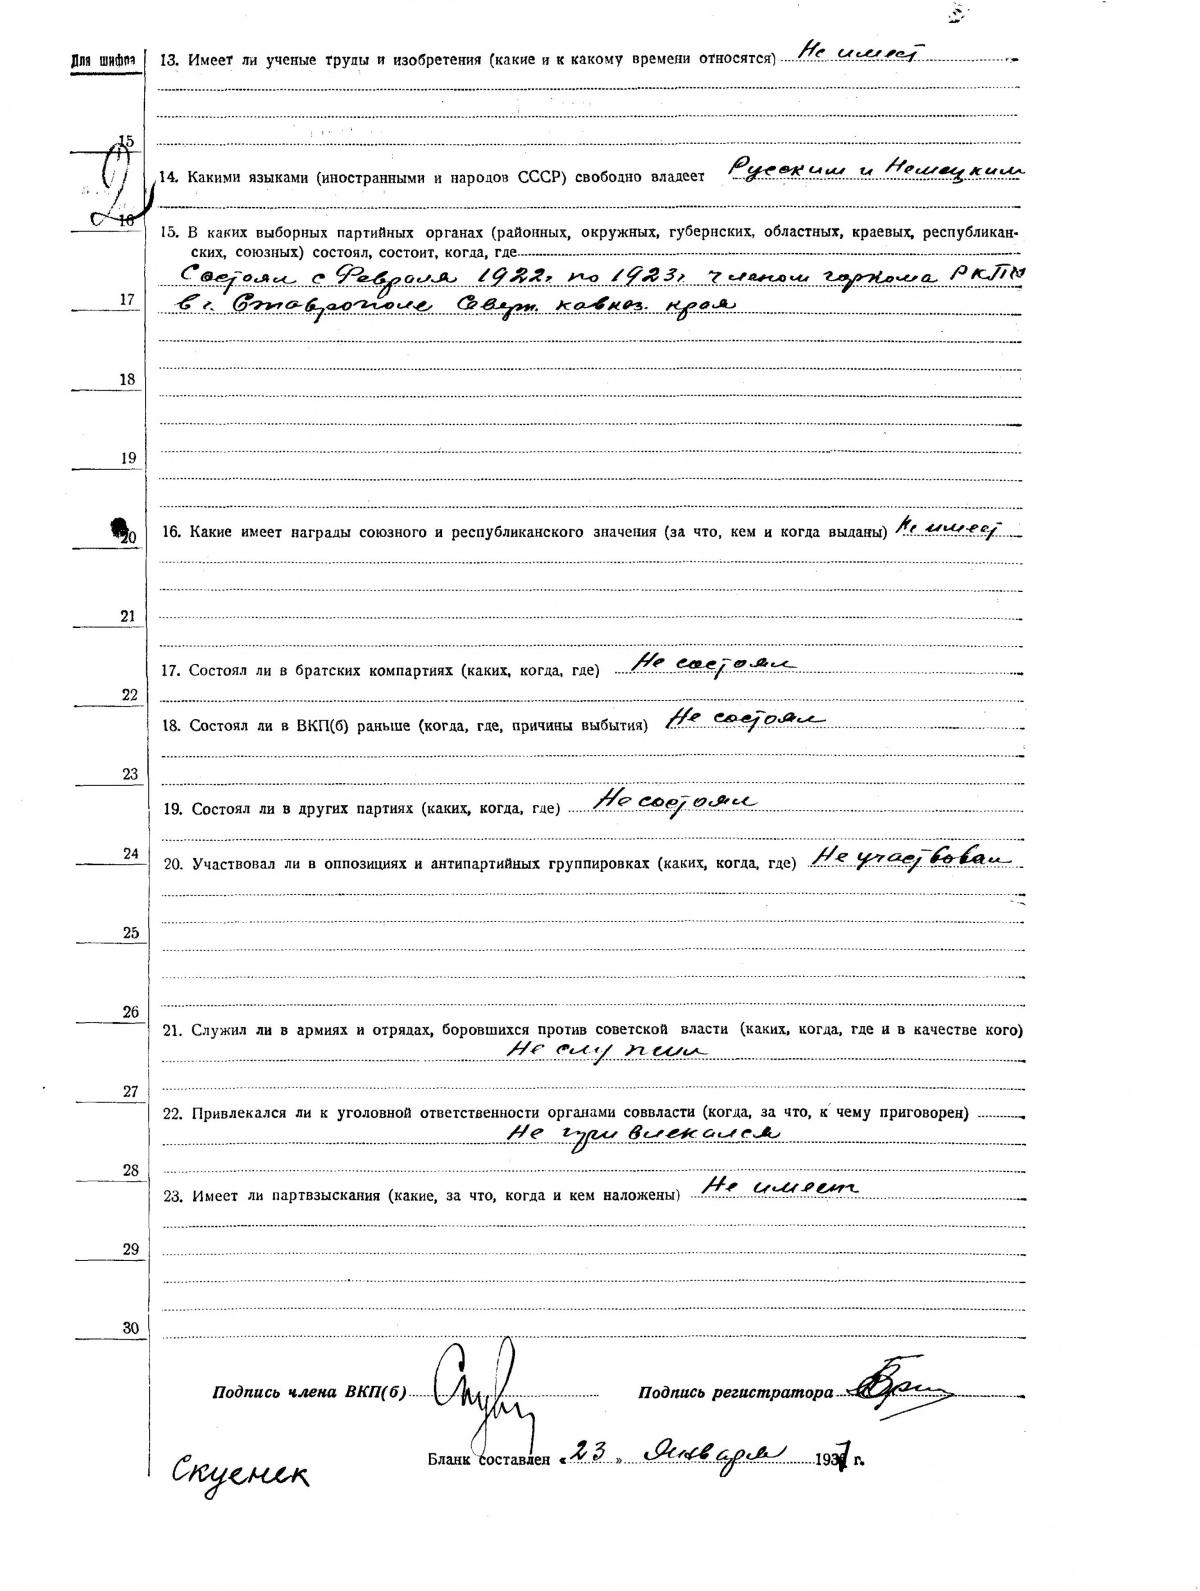 Для шифра
13. Имеет ли ученые труды и изобретения (какие и к какому времени относятся) Не имеет
15
2
14. Какими языками (иностранными и народов СССР) свободно владеет Русским и Немецким
16
15. В каких выборных партийных органах (районных, окружных, губернских, областных, краевых, республикан-
ских, союзных) состоял, состоит, когда, где
Состоял с Февраля 1922г. по 1923г. членом горкома РКП(б)
17
в г. Ставрополе Север. кавказ. края
18
19
16. Какие имеет награды союзного и республиканского значения (за что, кем и когда выданы) Не имеет
20
21
17. Состоял ли в братских компартиях (каких, когда, где) Не состоял
22
18. Состоял ли в ВКП(б) раньше (когда, где, причины выбытия) Не состоял
23
19. Состоял ли в других партиях (каких, когда, где) Не состоял
24
20. Участвовал ли в оппозициях и антипартийных группировках (каких, когда, где) Не участвовал
25
26
21. Служил ли в армиях и отрядах, боровшихся против советской власти (каких, когда, где и в качестве кого)
Не служил
27
22. Привлекался ли к уголовной ответственности органами соввласти (когда, за что, к чему приговорен)
Не привлекался
28
23. Имеет ли партвзыскания (какие, за что, когда и кем наложены) Не имеет
29
30
Подпись члена ВКП(б) Подпись регистратора
Бланк составлен «23» января 1937 г.